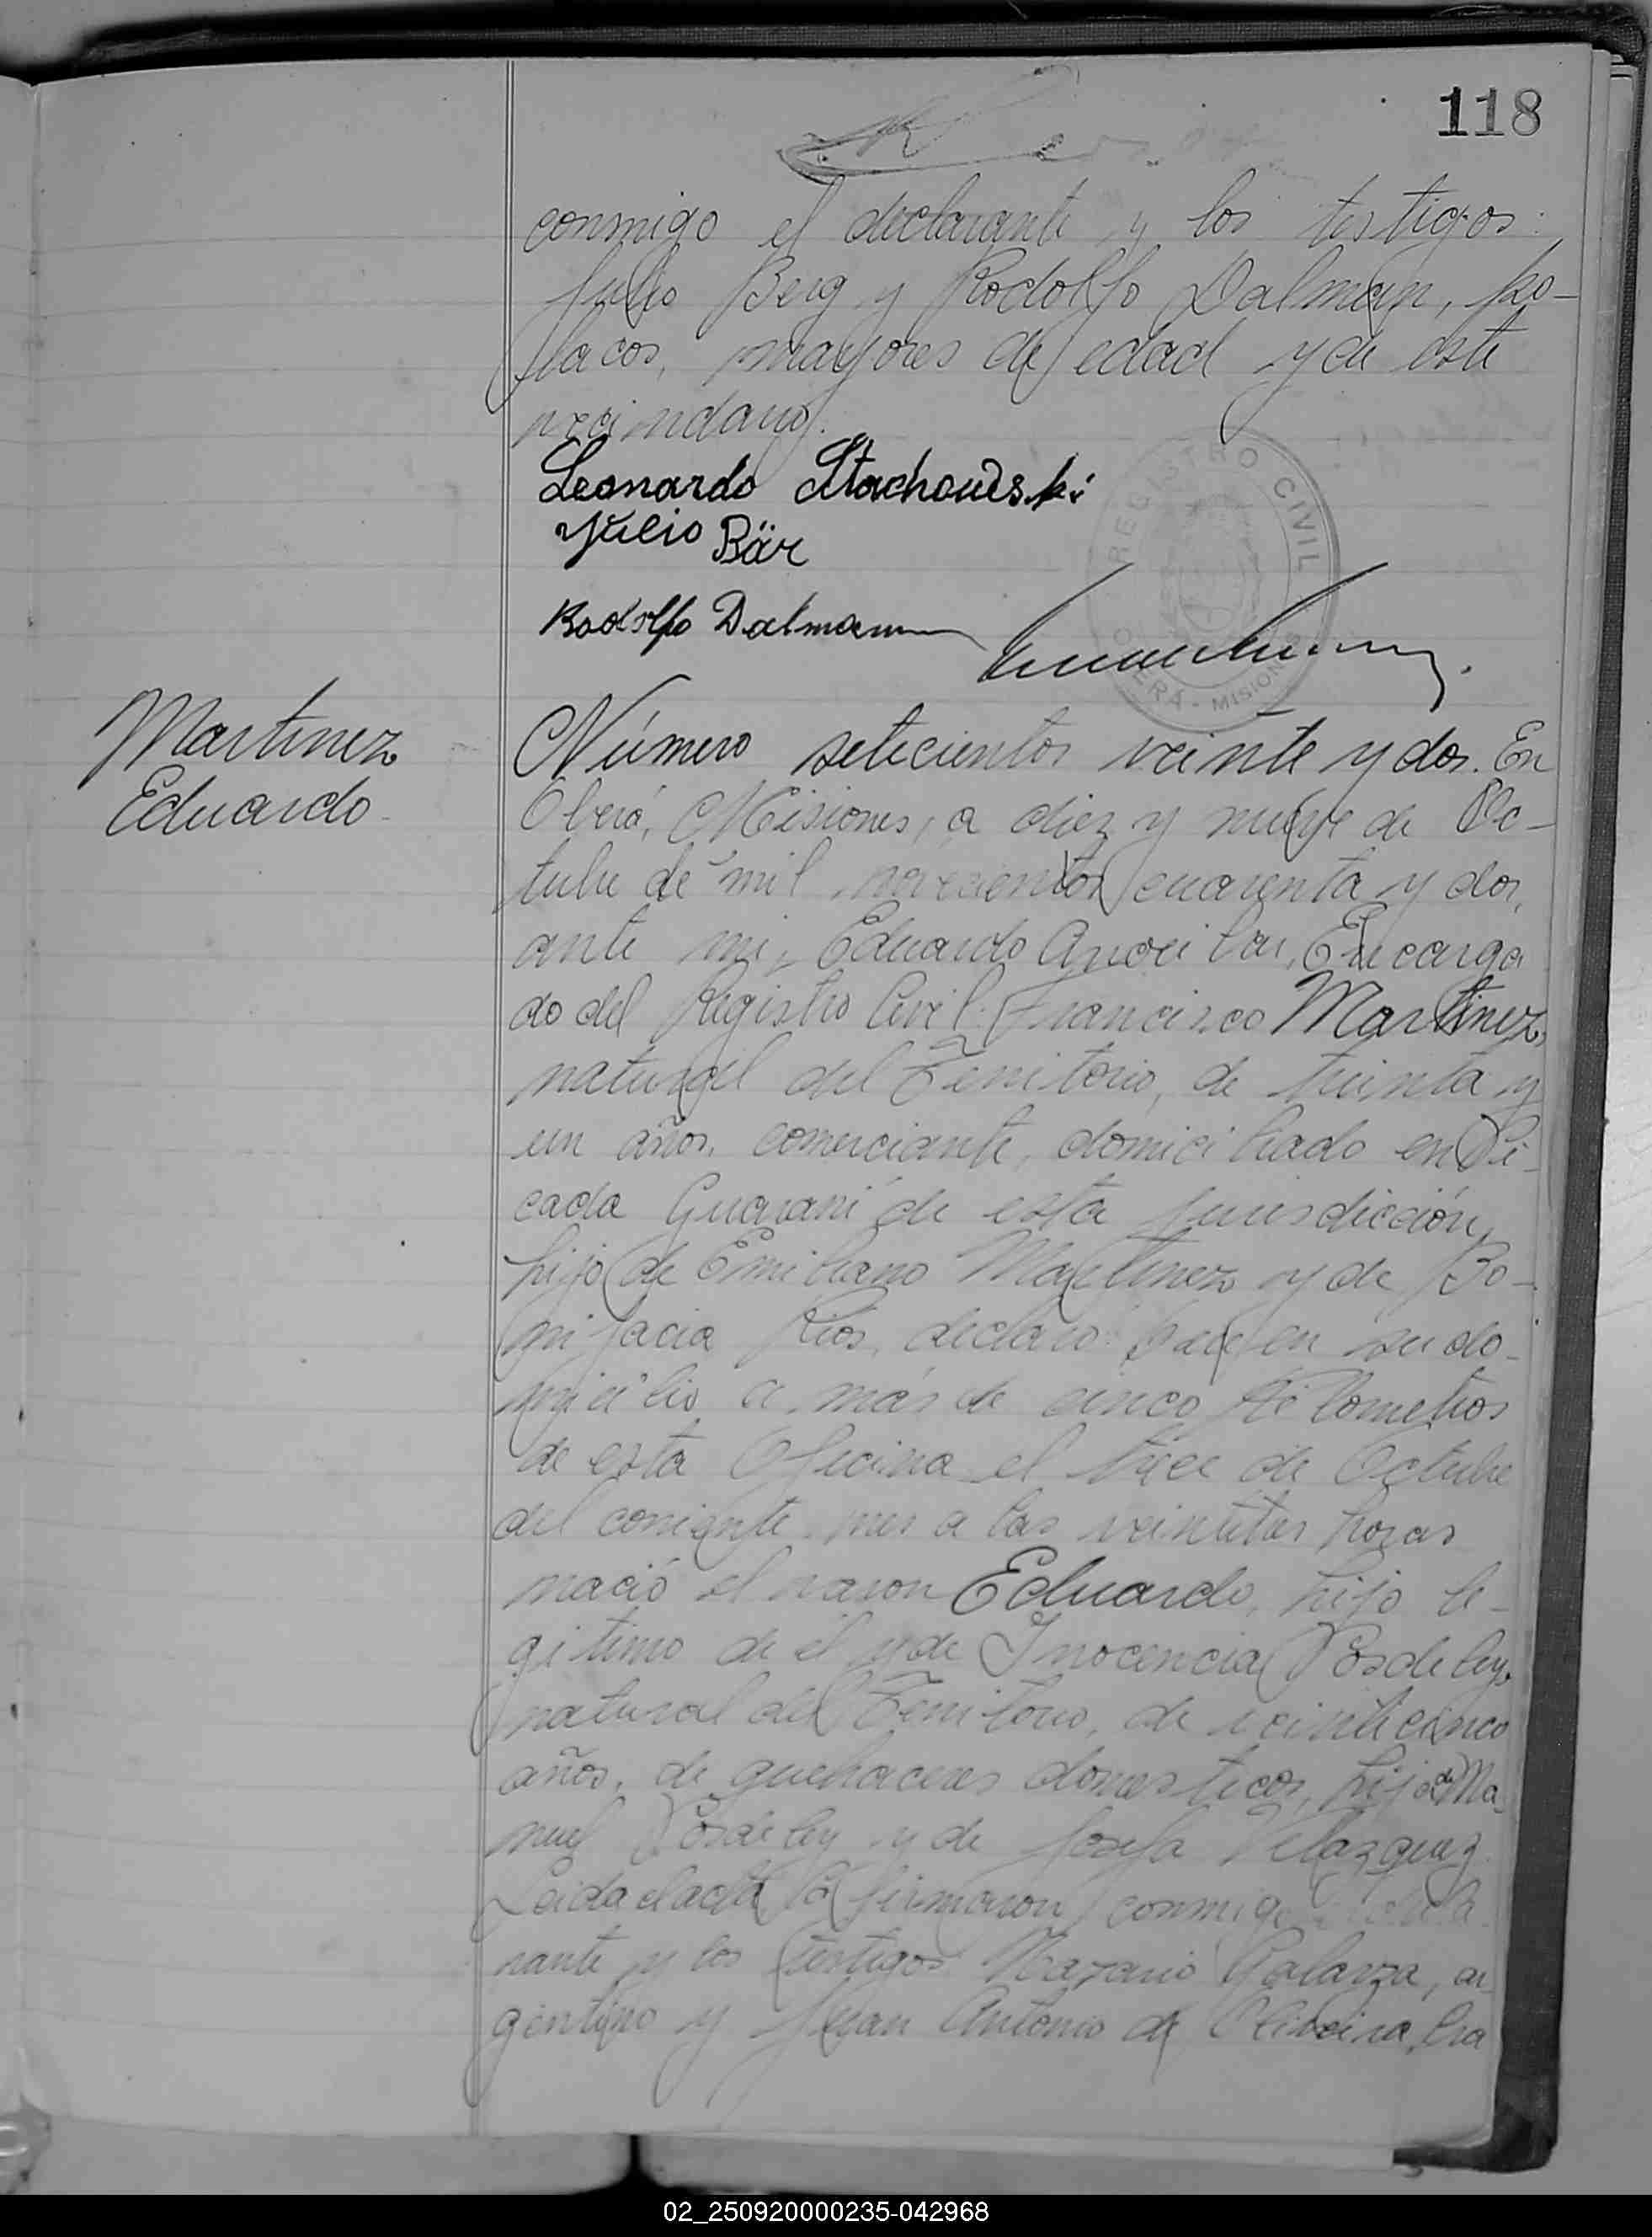 118
conmigo el declarante y los testigos:
Julio Berg y Rodolfo Dalman, po-
lacos, mayores de edad y de este
vecindario.
Leonardo Stachowski
Julio Bär
Rodolfo Dalmann
REGISTRO CIVIL
OBERÁ - MISIONES
Martinez
Eduardo
Número setecientos veinte y dos. En
Oberá, Misiones, a diez y nueve de Oc-
tubre de mil novecientos cuarenta y dos,
ante mi, Eduardo Encarga
do del Registro Civil: Francisco Martinez,
natural del Territorio, de treinta y
un años, comerciante, domiciliado en Pi-
cada Guaraní de esta jurisdicción,
hijo de Emiliano Martinez y de Bo-
nifacia Rios, declaró: Que en su do-
micilio a más de cinco kilometros
de esta Oficina el trece de Octubre
del corriente mes a las horas
nació el varon Eduardo, hijo le-
gitimo de él y de Inocencia Posdeley,
natural del Territorio, de veinticinco
años, de quehaceres domesticos, hija de Ma-
nuel Posdeley y de Josefa Velazquez.
Leida el acta la firmaron conmigo decla-
rante y los testigos Nazario Galarza, ar-
gentino y Juan Antonio de Oliveira, bra
02_250920000235-042968